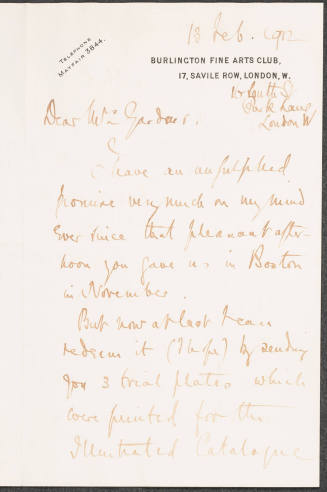 13 Feb. 1912
TELEPHONE
MAYFAIR 3844.
BURLINGTON FINE ARTS CLUB,
17, SAVILE ROW, LONDON, W.
South St
Park Lane
London W
Dear Mrs Gardner.
I have an unfulfilled
promise very much on my mind
Ever since that pleasant after-
noon you gave us in Boston
in November.
But now at last I can
redeem it (I hope) by sending
you 3 trial plates which
were printed for the
Illustrated Catalogue